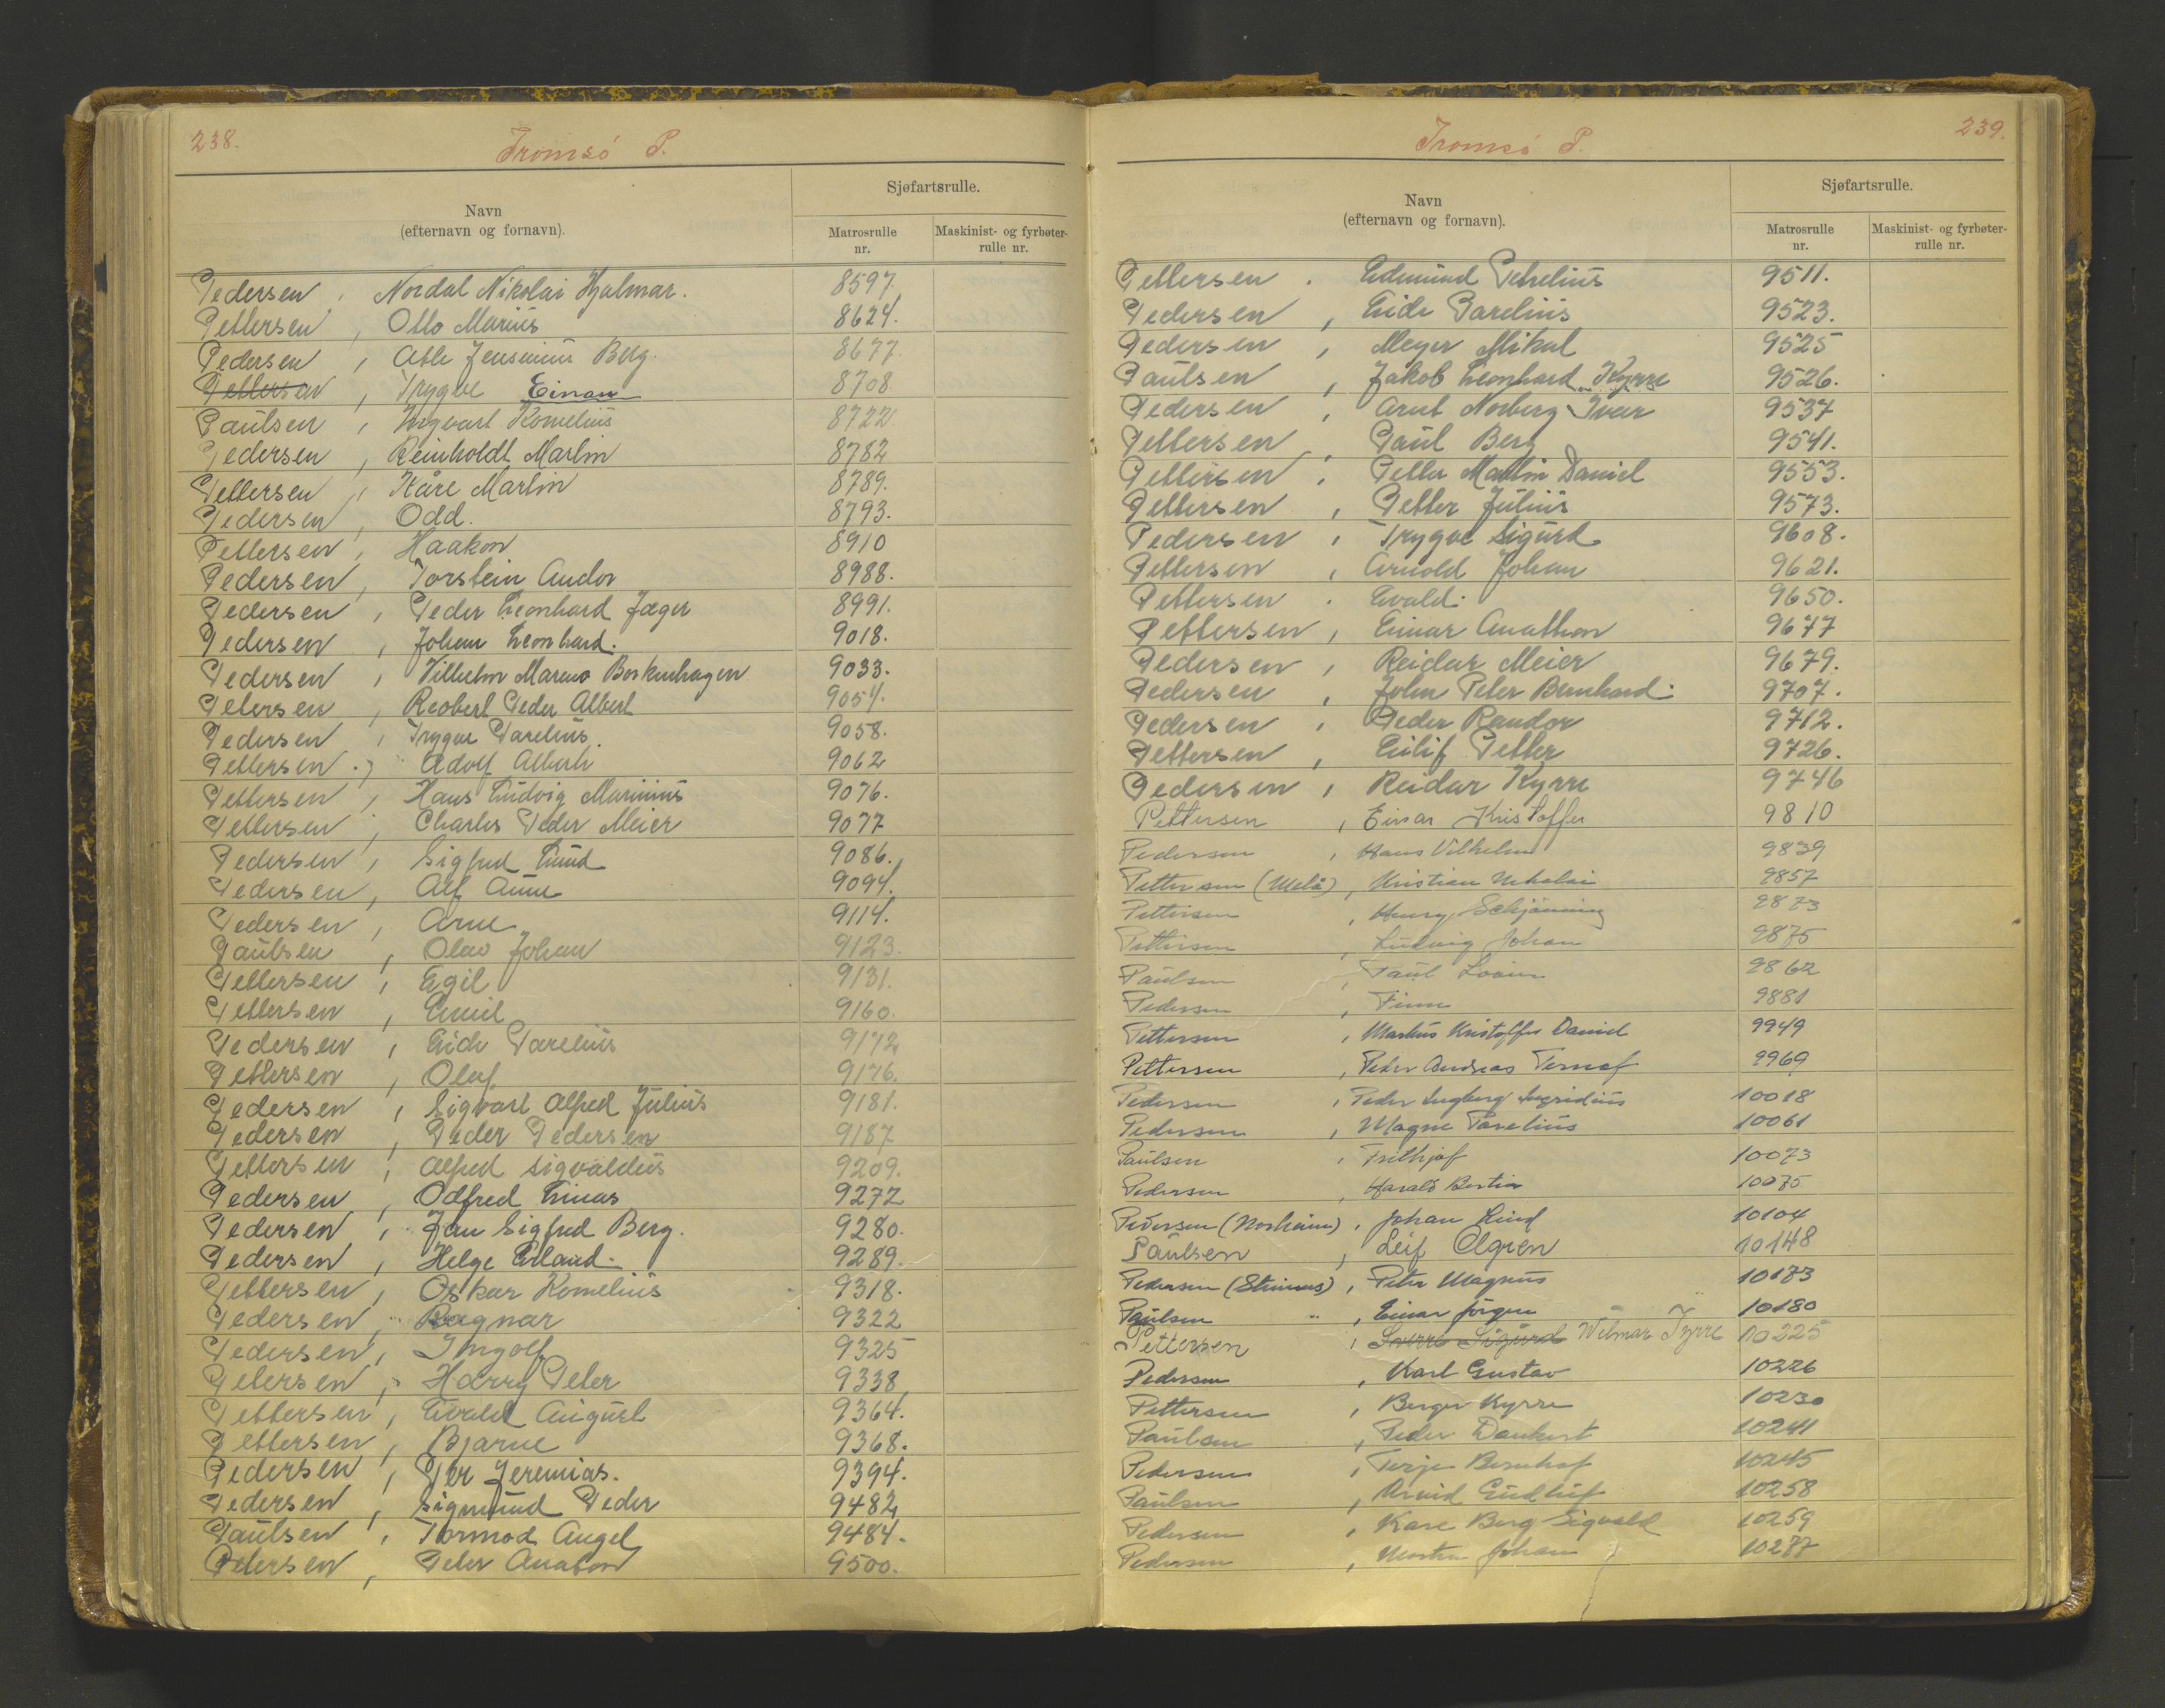 238.
Tromsö P.
Navn
(efternavn og fornavn).
Sjøfartsrulle.
Matrosrulle
nr.
Maskinist- og fyrbøter-
rulle nr.
Pedersen , Nordal Nikolai Hjalmar. 8597.
Pettersen , Otto Marius 8624.
Pedersen , Atle Jensenius Berg. 8677
Pettersen , Trygve Einan 8708
Paulsen , Ingvart Kornelius 8722.
Pedersen , Reinholdt Martin 8782
Pettersen , Kåre Martin 8789.
Pedersen , Odd. 8793.
Pettersen , Haakon 8910
Pedersen , Torstein Andor 8988.
Pedersen , Peder Leonhard Jæger 8991.
Pedersen , Johan Leonhard. 9018.
Pedersen , Vilhelm Mareno Borkenhagen 9033.
Petersen , Reobert Peder Albert 9054.
Pedersen , Trygve Parelius. 9058.
Pettersen , Adolf Alberth 9062
Pettersen , Hans Ludvig Marinius 9076.
Pettersen , Charles Peder Meier 9077
Pedersen , Sigfred Lund 9086.
Pedersen , Alf Aune 9094.
Pedersen , Arne 9114.
Paulsen , Olav Johan 9123.
Pettersen , Egil 9131.
Pettersen , Emil 9160.
Pedersen , Eide Parelius 9172
Pettersen , Olaf 9176.
Pedersen , Sigvart Alfred Julius 9181.
Pedersen , Peder Pedersen 9187
Pettersen , Alfred Sigvaldus 9209.
Pedersen , Odfred Linas 9272
Pedersen , Jan Sigfred Berg. 9280.
Pedersen , Helge Erland. 9289.
Pettersen , Oskar Kornelius 9318.
Pedersen , Ragnar 9322
Pedersen , Ingolf 9325
Petersen , Harry Peter 9338
Pettersen , Evald August 9364.
Pettersen , Bjarne 9368.
Pedersen , Per Jeremias. 9394.
Pedersen , Sigmund Peder 9482
Paulsen , Tormod Angel 9484.
Petersen , Peter Anaton 9500.
239.
Tromsö P.
Navn
(efternavn og fornavn).
Sjøfartsrulle.
Matrosrulle
nr.
Maskinist- og fyrbøter-
rulle nr.
Pettersen . Edmund Petrelius 9511.
Pedersen , Eide Parelius 9523.
Pedersen , Meyer Mikal 9525
Paulsen , Jakob Leonhard Kyrre 9526.
Pedersen , Arnt Norberg Ivar 9537
Pettersen , Paul Berg 9541.
Pettersen , Petter Martin Daniel 9553.
Pettersen , Petter Julius 9573.
Pedersen , Trygve Sigurd 9608.
Pettersen , Arnold Johan 9621.
Pettersen . Evald. 9650.
Pettersen , Einar Anathon 9677
Pedersen , Reidar Meier 9679.
Pedersen , John Peter Bernhard. 9707.
Pedersen , Peder Randor 9712.
Pettersen , Eilif Petter 9726.
Pedersen , Reidar Kyrre 9746
Pettersen , Einar Kristoffer 9810
Pedersen , Hans Vilhelm 9839
Pettersen (Melå) , Kristian Nikolai 9857
Pettersen , Henry Schjönning 9873
Pettersen , Ludvig Johan 9875
Paulsen , Paul 9862
Pedersen , Finn 9881
Pettersen , Markus Kristoffer Daniel 9949
Pettersen , Peder Andreas 9969
Pedersen , Peder Ingberg Ingridius 10018
Pedersen , Magne Parelius 10061
Paulsen , Frithjof 10073
Pedersen , Harald Bertin 10075
Pedersen (Norheim) , Johan Lind 10104
Paulsen , Leif Elgren 10148
Pedersen , Peter Magnus 10173
Paulsen , Einar Jörgen 10180
Pettersen , Sverre Sigurd Wilmar Tyrre 10225
Pedersen , Karl Gustav 10226
Pettersen , Berger Kyrre 10230
Paulsen , Peder Dankert 10241
Pedersen , Terje Bernhof 10245
Paulsen , Arvid Gudleif 10258
Pedersen , Kåre Berg Sigvald 10259
Pedersen , Johan 10277